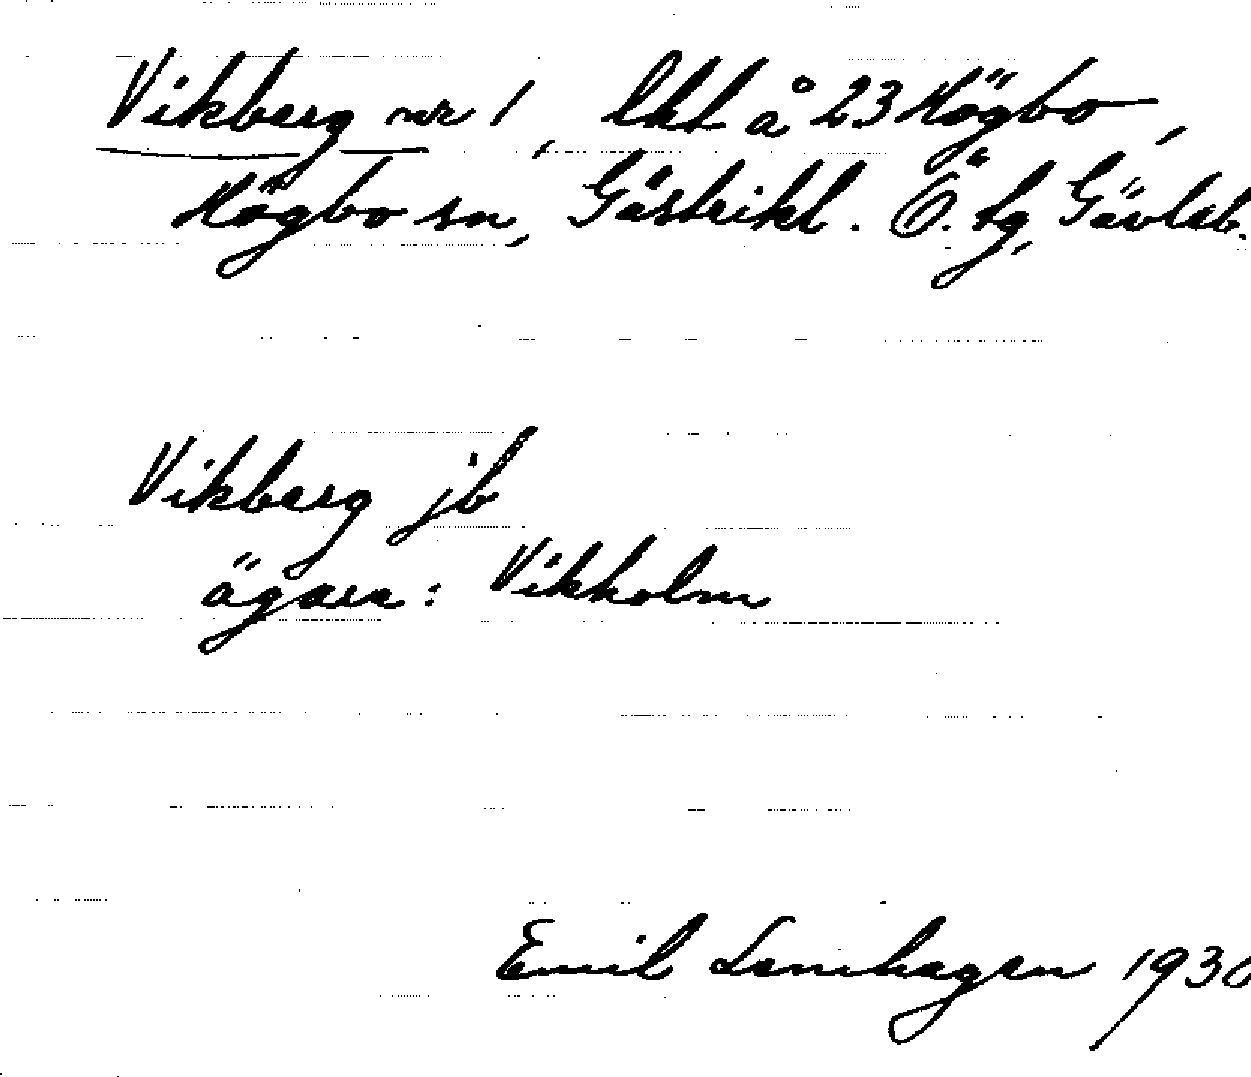 Vikberg nr 1, lht å 23 Högbo,
Högbo sn, Gästrikl. Ö. tg, Gävleb.
Vikberg jb
ägare: Vikholm
Emil Lenhagen 1930